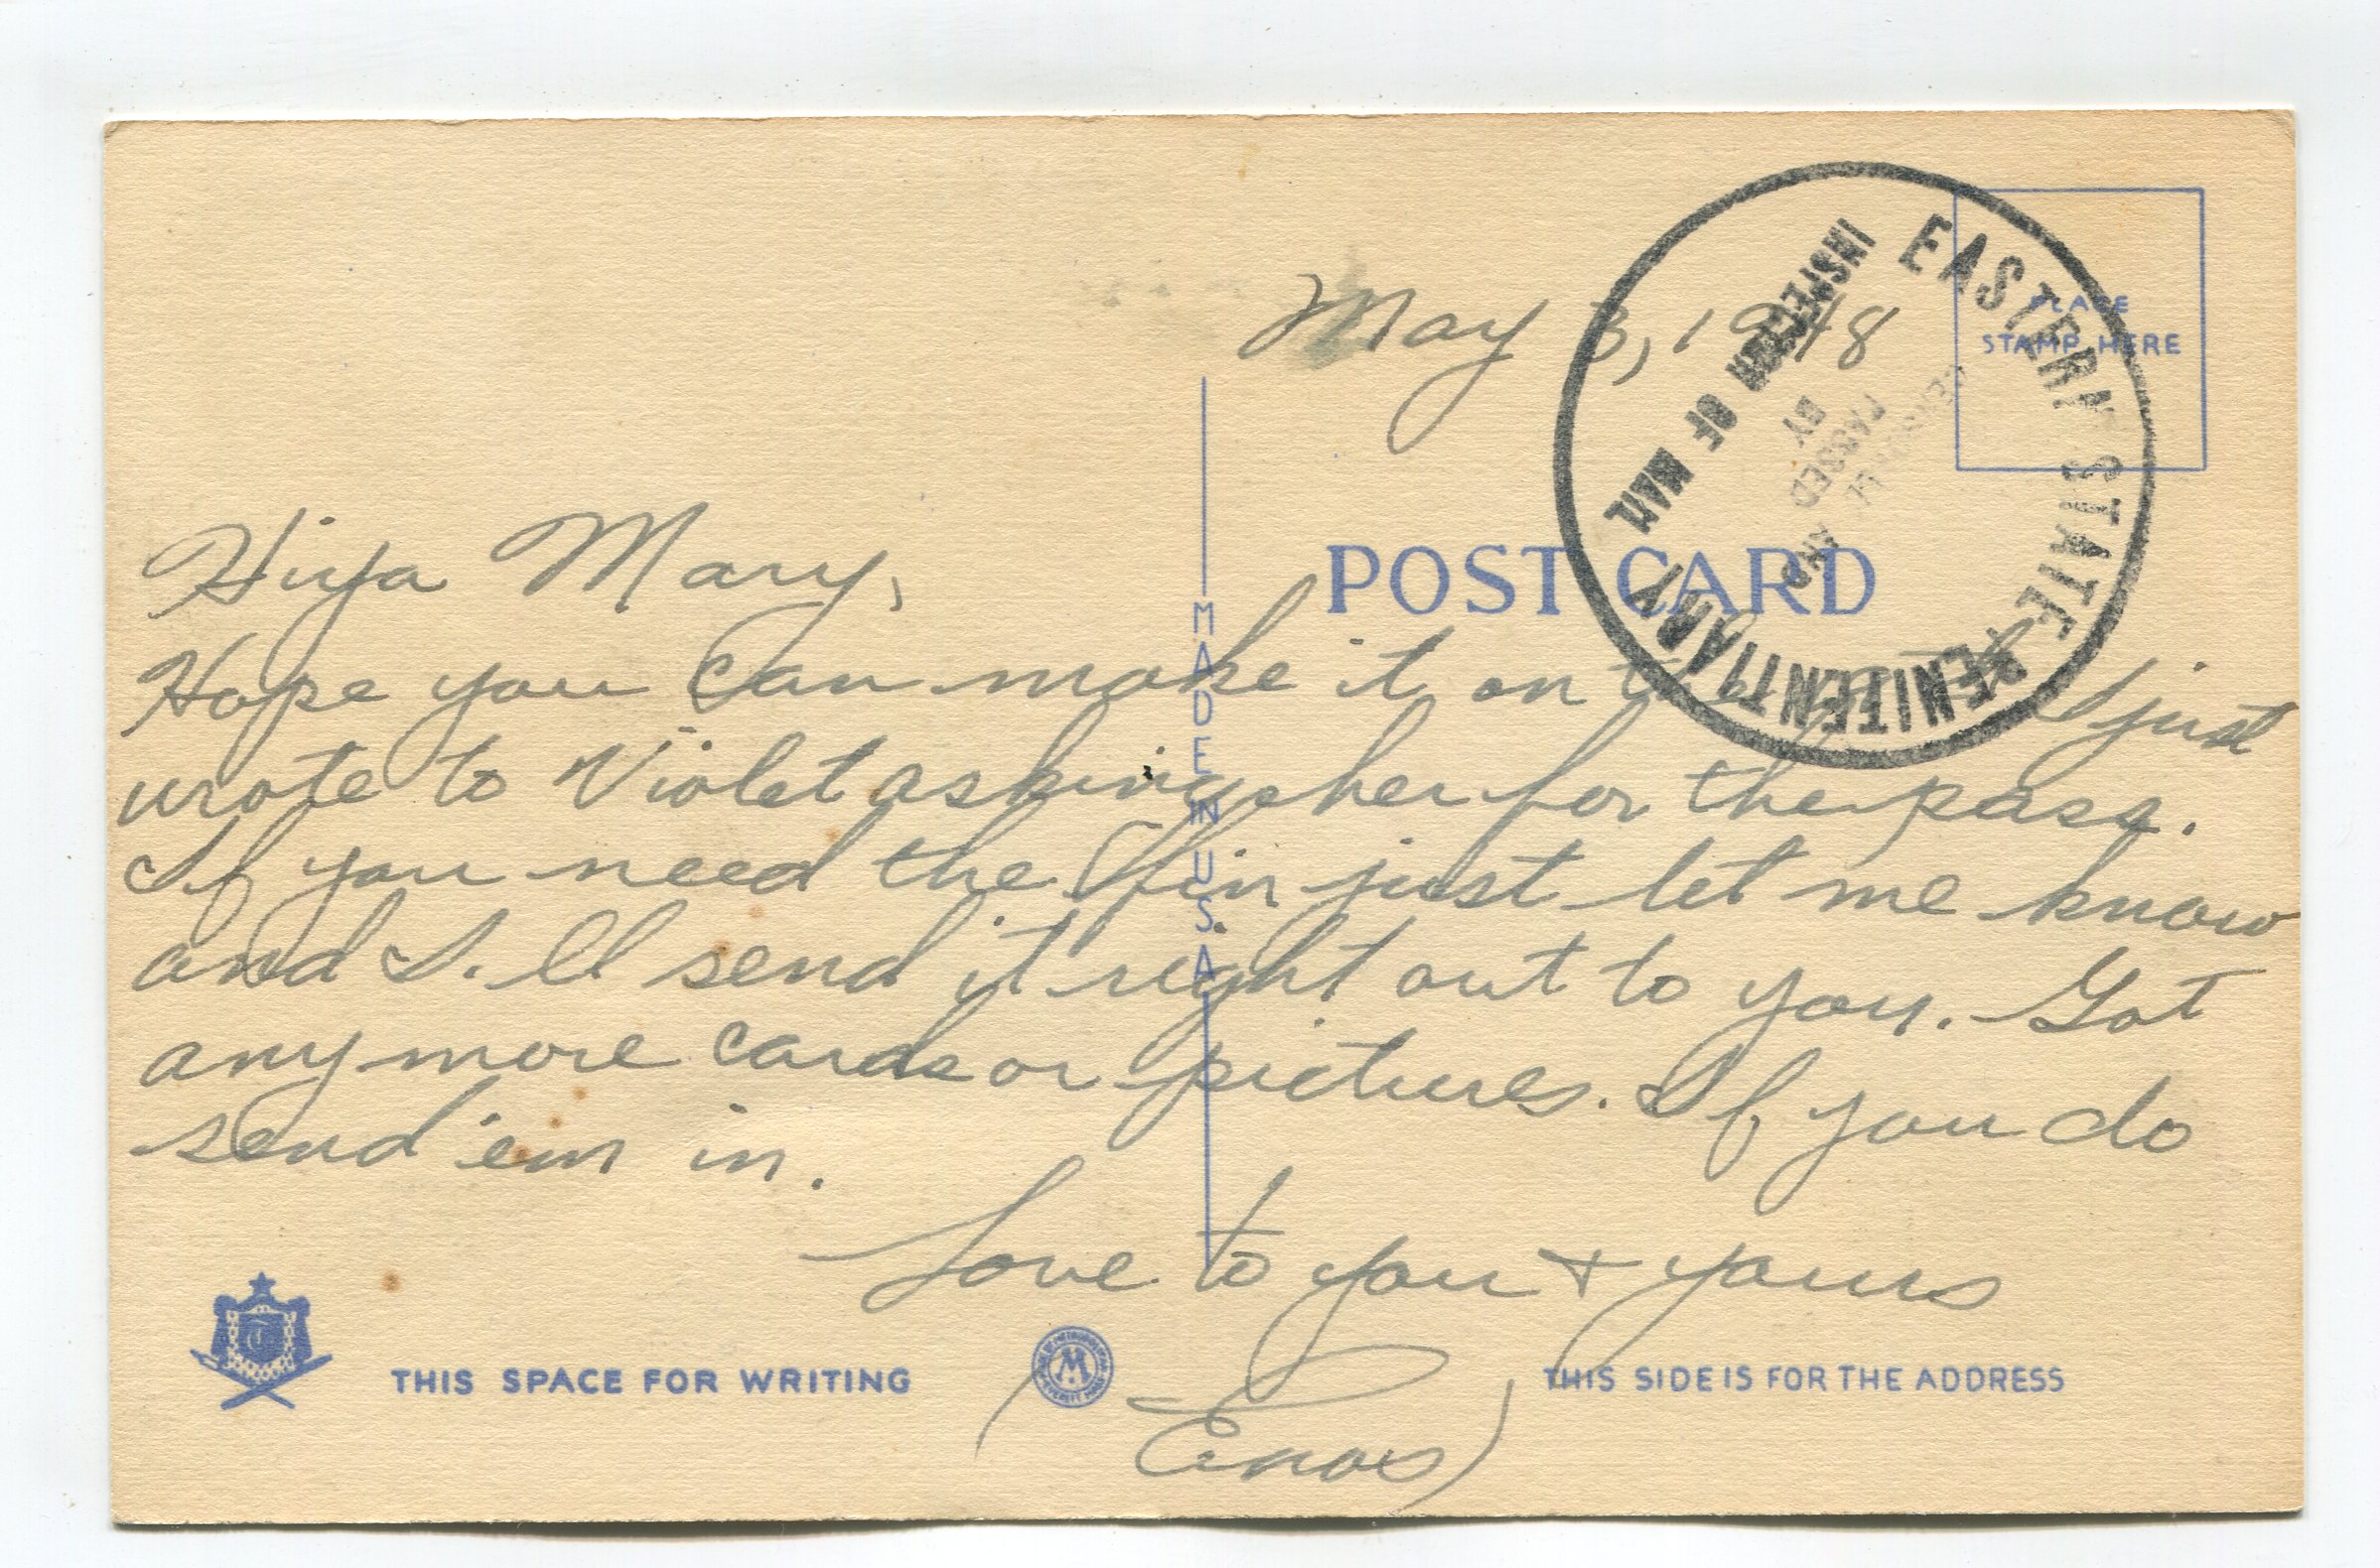 May 3, 1948
EASTERN STATE PENITENTIARY
INSPECTION OF MAIL
PASSED
BY
PLACE
STAMP HERE
POST CARD
MADE IN USA
Hiya Mary,
Hope you can make it on the I just
wrote to Violet asking her for the pass.
If you need the fin just let me know
and I.ll send it right out to you. Got
any more cards or pictures. If you do
send 'em in.
Love to you + yours
(Enos)
THIS SPACE FOR WRITING
THIS SIDE IS FOR THE ADDRESS